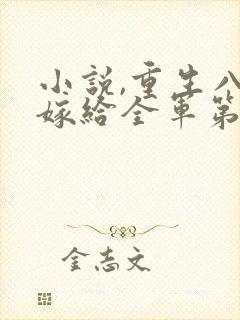 小説,重生八
嫁給全軍第
金志文